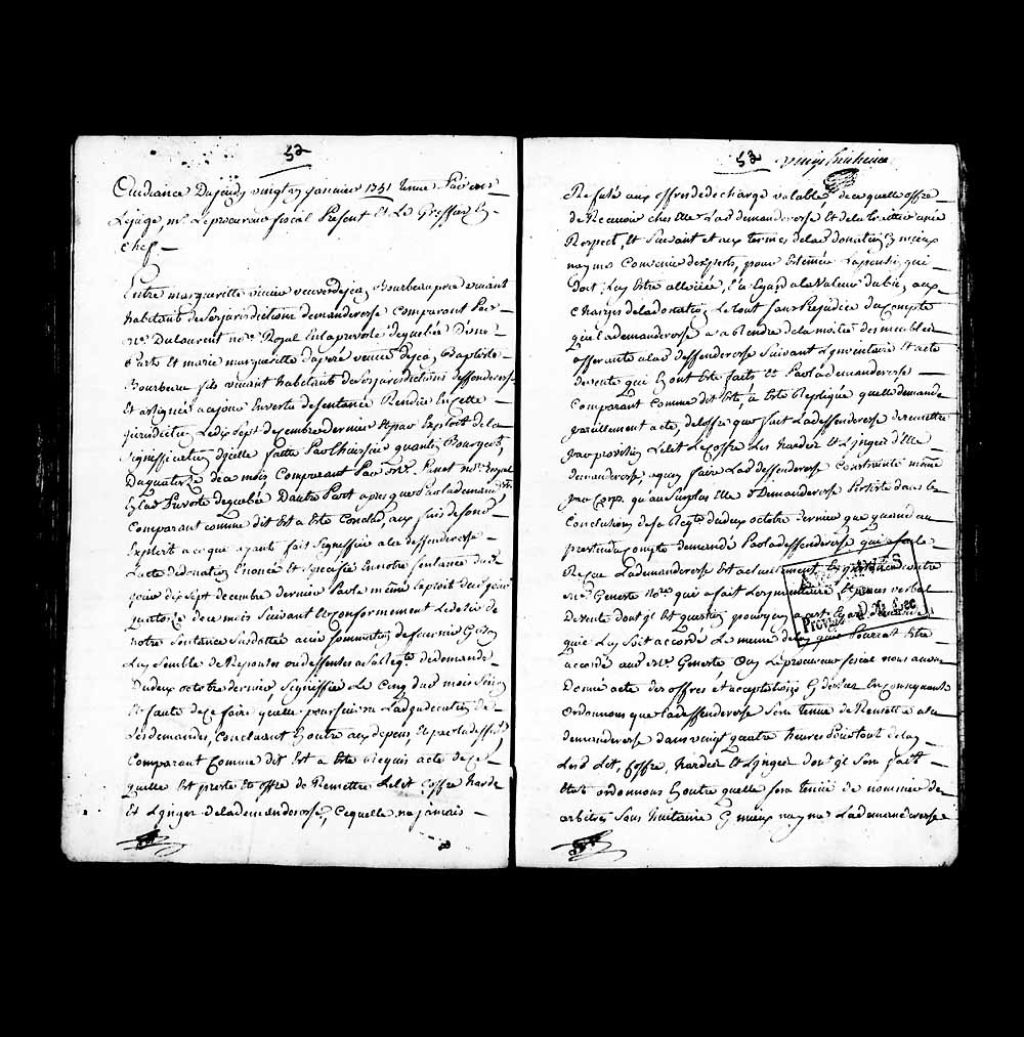 52
Audiance Du jeudy vingt un janvier 1751 tenue Par nous
Le juge, mr. Le procureur fiscal Present Et Le Greffier En
chef —
Entre margueritte vivier veuve de jean Bourbeau pere vivant
habitant de Ses jurisdictions demanderesse Comparant Par
me. Dulaurent nore. Royal En la prevosté de quebec D'une
Parte Et marie margueritte dupré veuve de jean Baptiste
Bourbeau fils vivant habitant de Ses jurisdictions deffenderesse
Et assignée a ce jour En vertu de sentance Rendue En cette
jurisdiction Le dix Sept decembre dernier Et par Exploit de la
Signiffication d'icelle faitte Par l'huissier
Du quatorze de ce mois Comparant Par Me. Pinet nore. Royal
En la Prevosté de quebec D'autre Part apres que Par la demandsse
Comparant comme dit Est a Eté Conclud, aux fins de son d.
Exploit a ce que ayant fait Signiffier a la deffenderesse
L'acte de donnation Enoncé Et Specifié En notre Sentance dud.
jour dix Sept decembre dernier Par le même Exploit dud. jour
quatorze de ce mois Suivant Et conformement
notre Sentance Susdattée avec sommation de fournir
de Reponses ou deffenses a Sa Reqte. de demande
Du deux octobre dernier, Signiffiée Le Cinq dud. mois
Et faute de ce faire qu'elle poursuivra L'adjudication de
Ses demandes, Concluant En outre aux depens, Et par la deffse.
Comparant Comme dit Est a Eté Requis acte de ce
qu'elle Est preste Et offre de Remettre Le Lit Coffre hardes
Et Linges de la demanderesse, Ce qu'elle n'a jamais —
53
Refusé aux offres de decharge valable, de ce qu'elle offre
de Recevoir chez Elle La d. demanderesse Et de la traitter avec
Respect, Et Suivant et aux termes de la d. donation
n'ayme Convenir d'Experts, pour Estimer La pension qui
doit Luy Etre allouée, Eu Egard a la Valeur du bien aux
charges de la d. donation, Le tout Sans Prejudice du Compte
que la demanderesse a a Rendre de la moitié des meubles
afferante a la d. deffenderesse Suivant L'inventaire Et acte
de vente qui En ont Eté faits Et Par la demanderesse
Comparant Comme dit Est, a Eté Repliqué qu'elle demande
pareillement acte, de l'offre que fait La deffenderesse de remettre
Le Lit Le Coffre Les hardes Et Linges d'Elle
demanderesse, a quoy faire Lad. deffenderesse Contrainte même
par Corps, qu'au Surplus Elle demanderesse Persiste dans les
Conclusions de Sa Reqte. du deux octobre dernier que quand au
pretendu Compte demandé Par la deffenderesse
La demanderesse Est actuellement
Me. Geneste nore. qui a fait L'inventaire Et procès verbal
De vente dont il Est question pourquoy
que Luy Soit accordé Le meme delay que Pourra Etre
accordé aud. Me. Geneste Ouy Le procureur fiscal nous avons
Donné acte des offres et acceptations Cy dessus En Consequence
Ordonnons que la deffenderesse Sera tenue de Remettre a la
demanderesse dans vingt quatre heures Pour tout delay
Les d. Lit, Coffre, hardes Et Linges dont il Sera fait
Etat ordonnons En outre qu'elle Sera tenue de nommer des
arbitres Sous huitaine Sy mieux n'ayme La demanderesse
ARCHIVES
Province de Québec